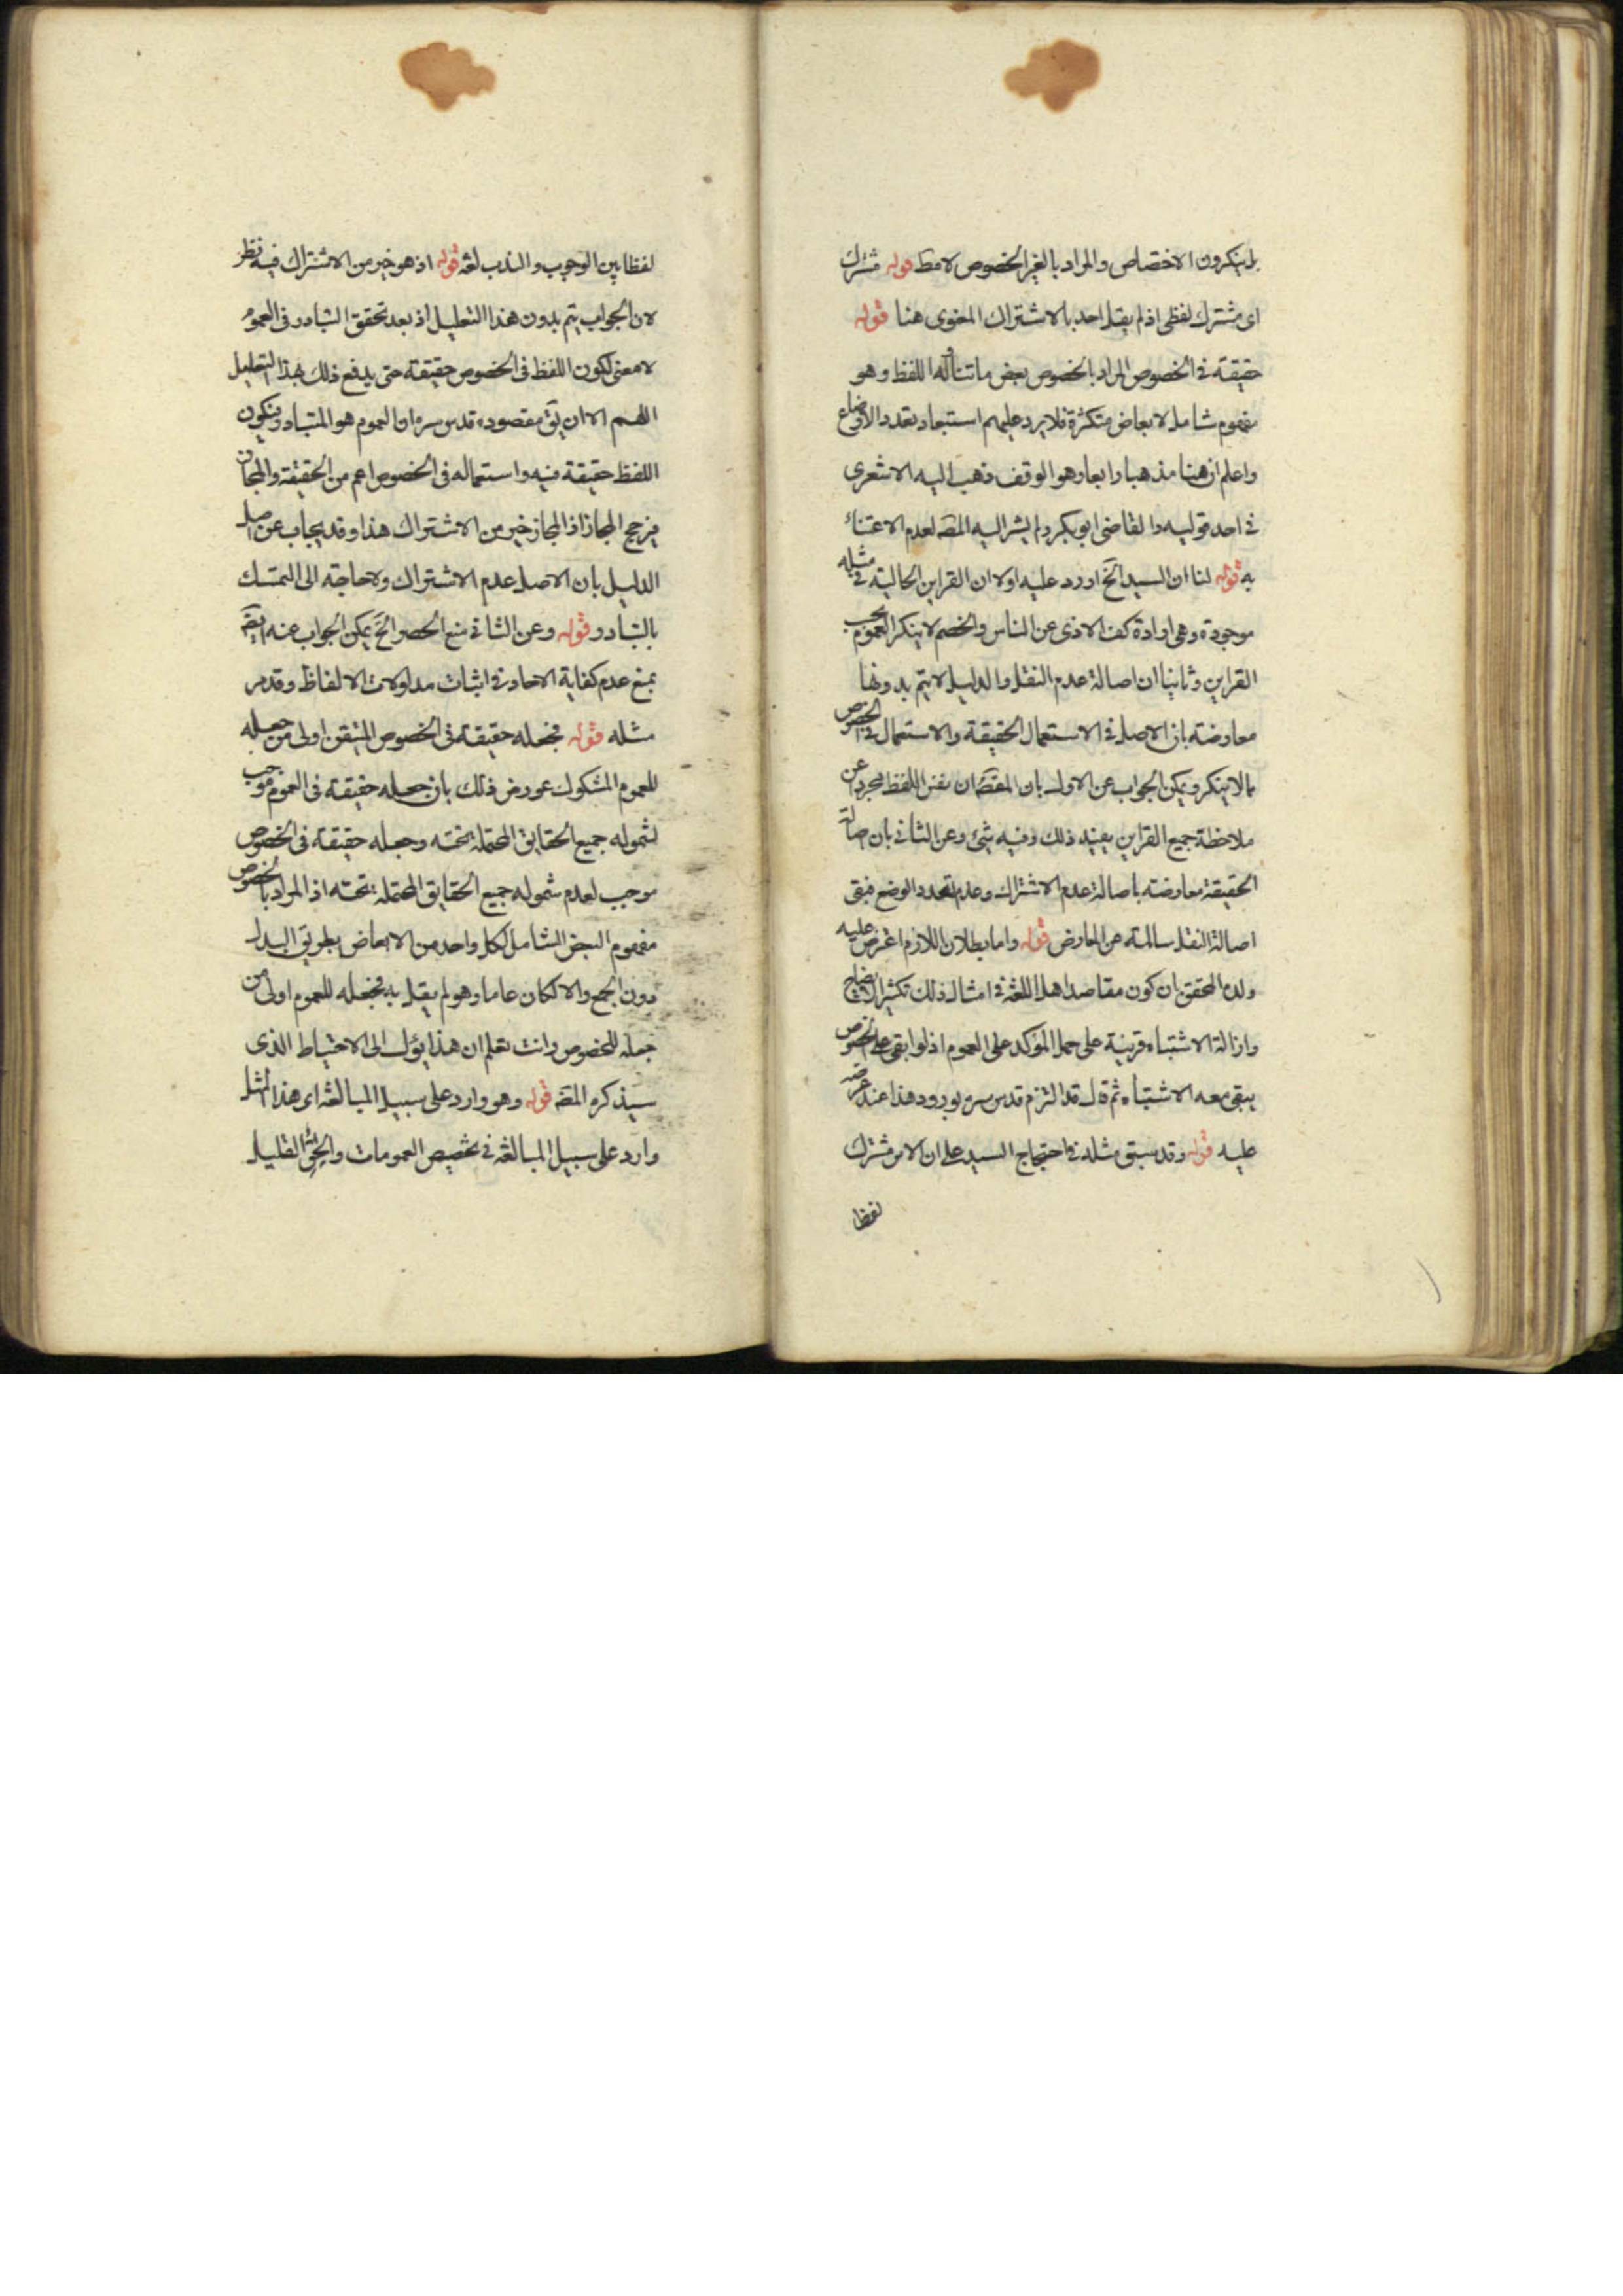 بل ينكرون الاختصاص والمراد بالغير الخصوص لامط قوله مشترك
اى مشترك لفظى اذ لم يقل احد بالاشتراك المعنوى هنا قوله
حقيقة فى الخصوص المراد بالخصوص بعض ما تناله اللفظ وهو
مفهوم شامل لابعاض متكثرة فلا يرد عليهم استبعاد تعدد الاوضاع
واعلم ان هنا مذهبا رابعا وهو الوقف ذهب اليه الاشعرى
فى احد قوليه والقاضى ابو بكر ولم يشر اليه المصه لعدم الاعتناء
به قوله لنا ان السيد الخ اورد عليه اولا ان القراين الحالية فى مثله
موجودة وهى ارادة كف الاذى عن الناس والخصم لا ينكر العموم بحسب
القراين وثانيا ان اصالة عدم النقل والدليل لا يتم بدونها
معارضة بان الاصل فى الاستعمال الحقيقة والاستعمال فى الخصوص
مالا ينكر ويمكن الجواب عن الاول بان المقصه ان نفس اللفظ مجردا عن
ملاحظة جميع القراين يفيد ذلك وفيه شئ وعن الثانى بان اصالة
الحقيقة معارضة باصالة عدم الاشتراك وعدم تعدد الوضع فبقى
اصالة النقل سالمة عن المعارض قوله واما بطلان اللازم اعترض عليه
ولده المحقق بان كون مقاصد اهل اللغة فى امثال ذلك تكثير الايضاح
وازالة الاشتباه قرينة على حمل المؤكد على العموم اذ لو ابقى على الخصوص
يبقى معه الاشتباه ثم قال قد التزم قدس سره بورود هذا عند عرضه
عليه قوله وقد سبق مثله فى احتجاج السيد على ان الامر مشترك
لفظا
لفظا بين الوجوب والندب لغة قوله اذ هو خير من الاشتراك فيه نظر
لان الجواب يتم بدون هذا التعليل اذ بعد تحقق التبادر فى العموم
لا معنى لكون اللفظ فى الخصوص حقيقة حتى يدفع ذلك بهذا التعليل
اللهم الا ان يق مقصوده قدس سره ان العموم هو المتبادر فيكون
اللفظ حقيقة فيه واستعماله فى الخصوص اعم من الحقيقة والمجاز
فيرجح المجاز اذ المجاز خير من الاشتراك هذا وقد يجاب عن اصل
الدليل بان الاصل عدم الاشتراك ولا حاجة الى التمسك
بالتبادر قوله وعن الثانى منع الحصر الخ يمكن الجواب عنه ايضه
بمنع عدم كفاية الاحاد فى اثبات مدلولات الالفاظ وقد مر
مثله قوله فجعله حقيقة فى الخصوص المتيقن اولى من جعله
للعموم المشكوك عورض ذلك بان جعله حقيقة فى العموم موجب
لشموله جميع الحقايق المحتملة تحته وجعله حقيقة فى الخصوص
موجب لعدم شموله جميع الحقايق المحتملة تحته اذ المراد بالخصوص
مفهوم البعض الشامل لكل واحد من الابعاض بطريق البدل
دون الجمع والا لكان عاما وهو لم يقل به فجعله للعموم اولى من
جعله للخصوص وانت تعلم ان هذا يؤل الى الاحتياط الذى
سيذكره المصه قوله وهو وارد على سبيل المبالغة اى هذا المثل
وارد على سبيل المبالغة فى تخصيص العمومات والحق القليل